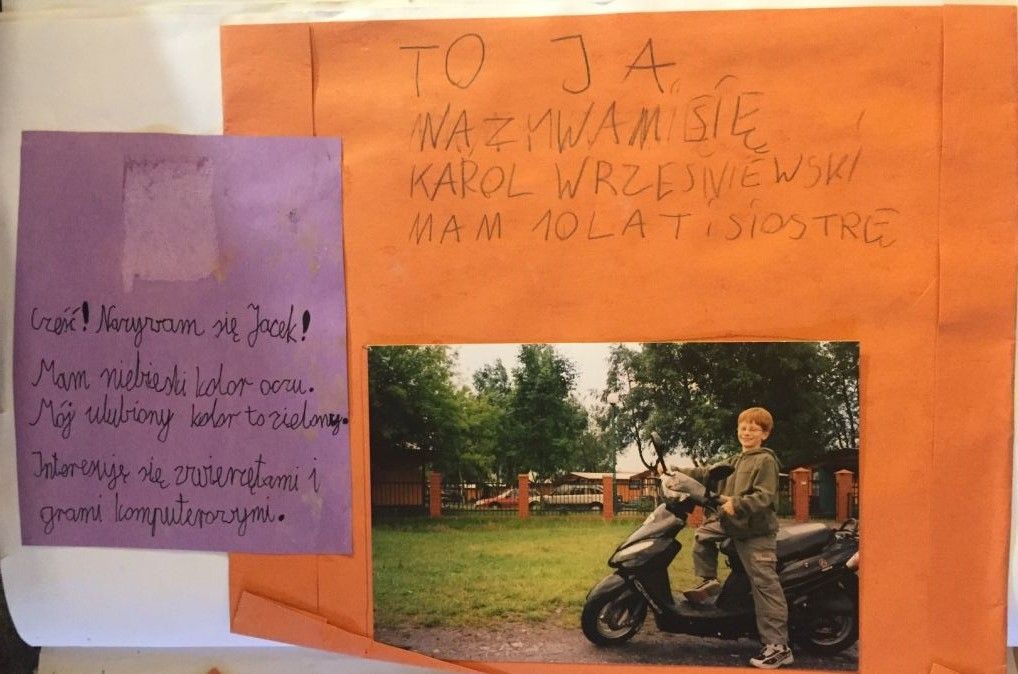 Cześć! Nazywam się Jacek!
Mam niebieski kolor oczu.
Mój ulubiony kolor to zielony.
Interesuję się zwierzętami i
grami komputerowymi.
TO JA
NAZYWAM SIĘ
KAROL WRZEŚNIEWSKI
MAM 10 LAT i SIOSTRĘ